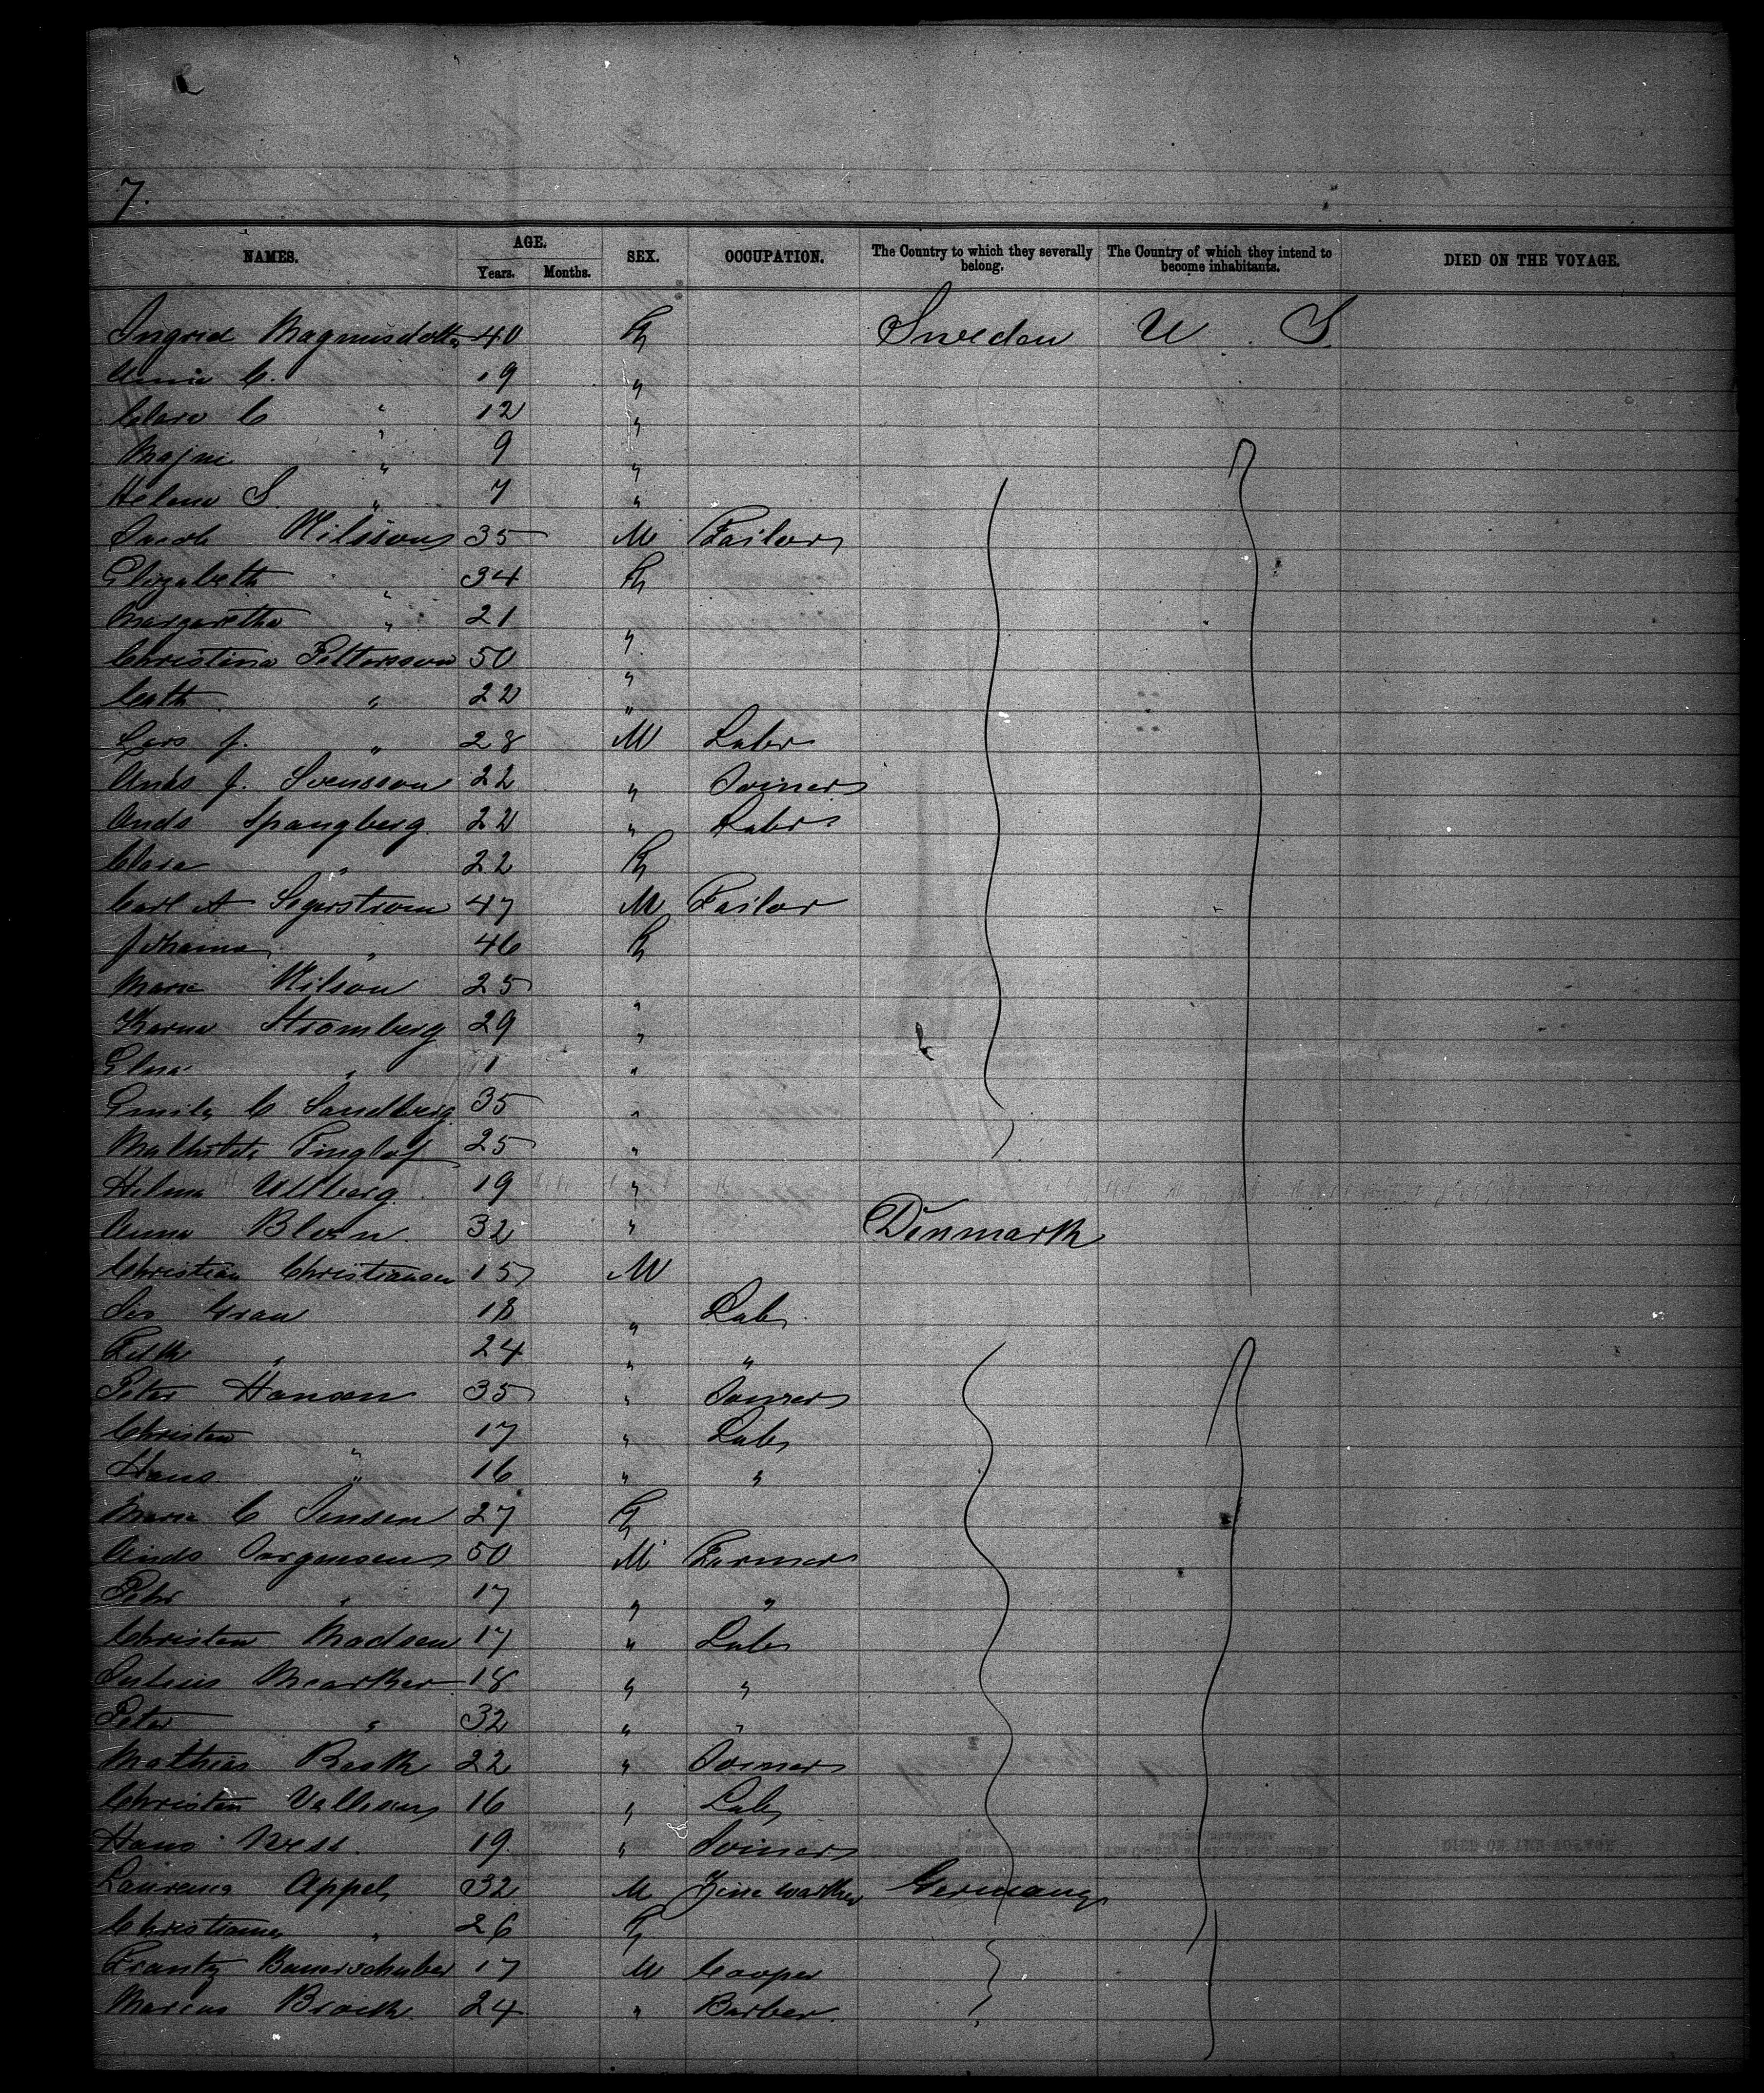 7.
NAMES. AGE. Years. Months. SEX. OCCUPATION. The Country to which they severally belong. The Country of which they intend to become inhabitants. DIED ON THE VOYAGE.
Ingrid Magnusdotter 40 F Sweden U S
Annie C. 19 "
Clara C " 12 "
Majni " 9 "
Helena S " 7 "
Jacob Nilsson 35 M Tailor
Elizabeth " 34 F
Margaretha " 21 "
Christina Pettersson 50 "
Cath " 22 "
Lars J. " 28 M Labr
Ands J. Svensson 22 " Joiner
Ands Spangberg 22 " Labr
Clara " 22 F
Carl A Segerstrom 47 M Tailor
Johanna " 46 F
Maria Nilson 25 "
Karna Stromberg 29 "
Elna " 1 "
Emily C Sandberg 35 "
25 "
Ullberg 19 "
Anna 32 " Denmark
Christian Christiansen 15 M
Gran 18 " Lab
" 24 " "
Peter Hansen 35 " Joiner
Christen " 17 " Lab
Hans " 16 " "
Marie C Jensen 27 F
Ands Jorgensen 50 M Farmer
Petr " 17 " "
Christen Madsen 17 " Lab
Julius Mearker 18 " "
Peter " 32 " "
Mathias Rask 22 " Joiner
Christen 16 " Lab
Hans 19 " Joiner
Appel 32 M Germany
Christiane " 26 F
Frantz Bauerschuber 17 M Cooper
Marcus 24 " Barber